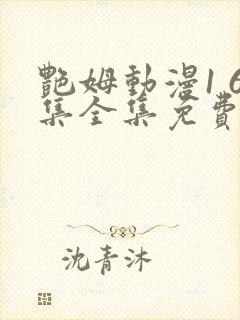 艷姆動漫1 6
集全集免費
沈青沐